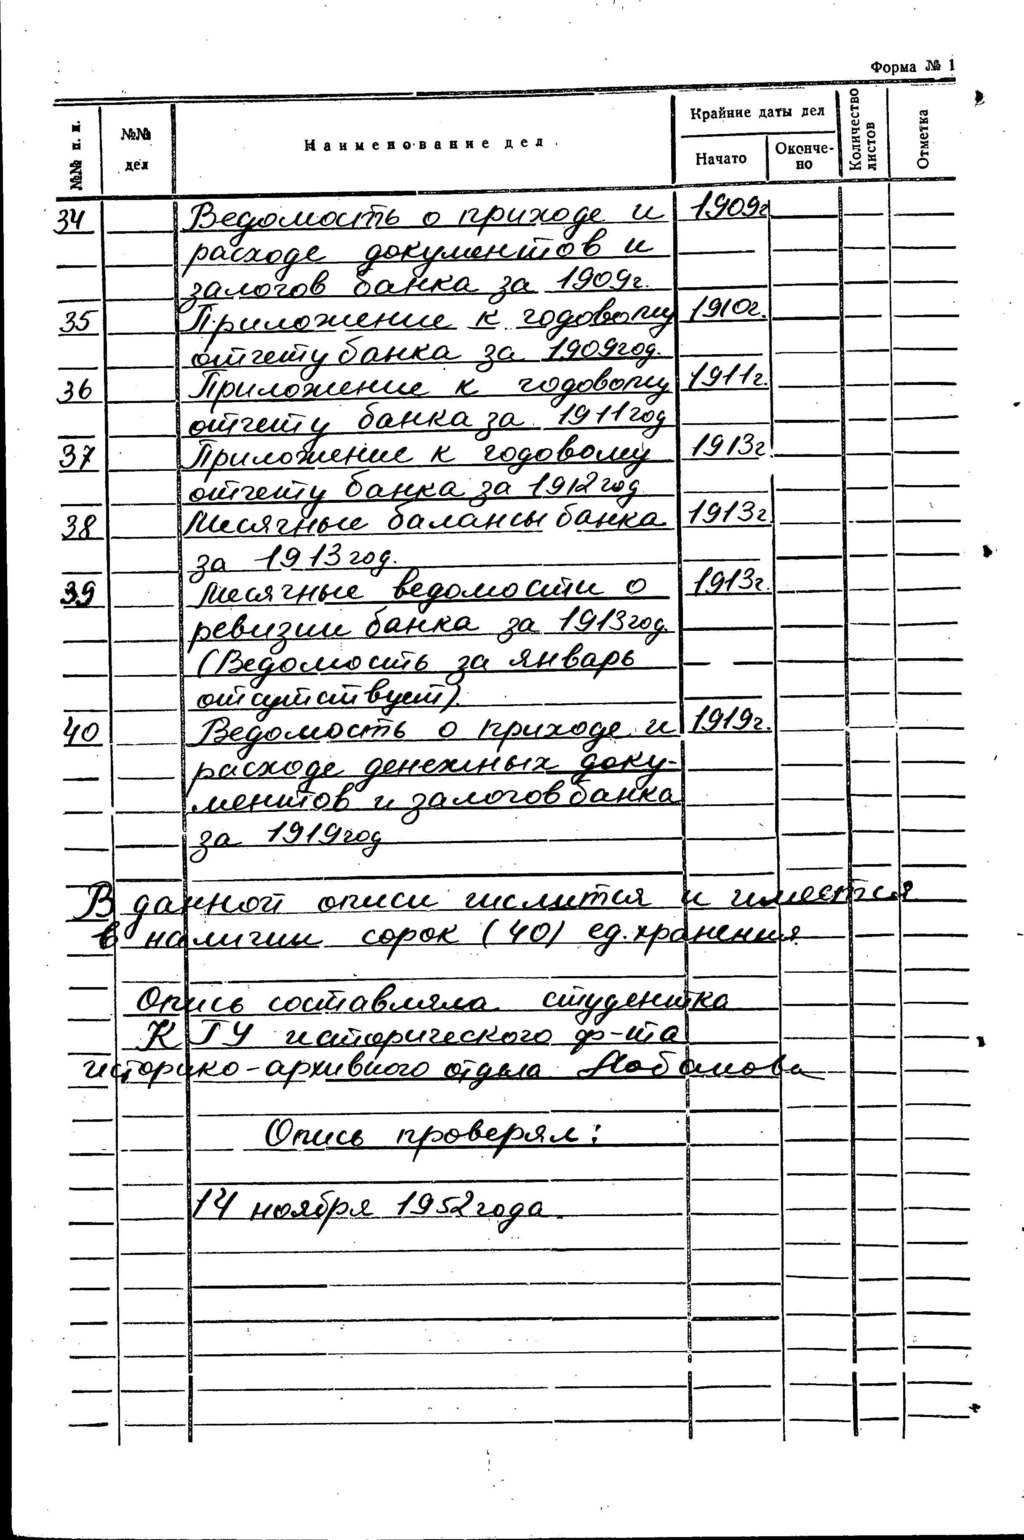 Форма № 1
№№ п. п.
№№ дел
Наименование дел
Крайние даты дел
Начато
Окончено
Количество листов
Отметка
34 Ведомость о приходе и 1909г
расходе документов и
залогов банка за 1909г.
35 Приложение к годовому 1910г.
отчету банка за 1909год.
36 Приложение к годовому 1911г.
отчету банка за 1911год
37 Приложение к годовому 1913г.
отчету банка за 1912год
38 Месячные балансы банка 1913г
за 1913год.
39 Месячные ведомости о 1913г.
ревизии банка за 1913год
(Ведомость за январь
отсутствует).
40 Ведомость о приходе и 1919г.
расходе денежных доку-
ментов и залогов банка
за 1919год
В данной описи числится и имеется
в наличии сорок (40) ед. хранения
Опись составляла студентка
КГУ исторического ф-та
историко-архивного отдела
Опись проверял:
14 ноября 1952года.